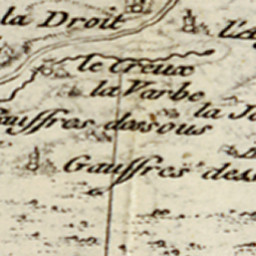 la Droit
le Creux
la Varbe
Gauffres dessous
Gauffres dess